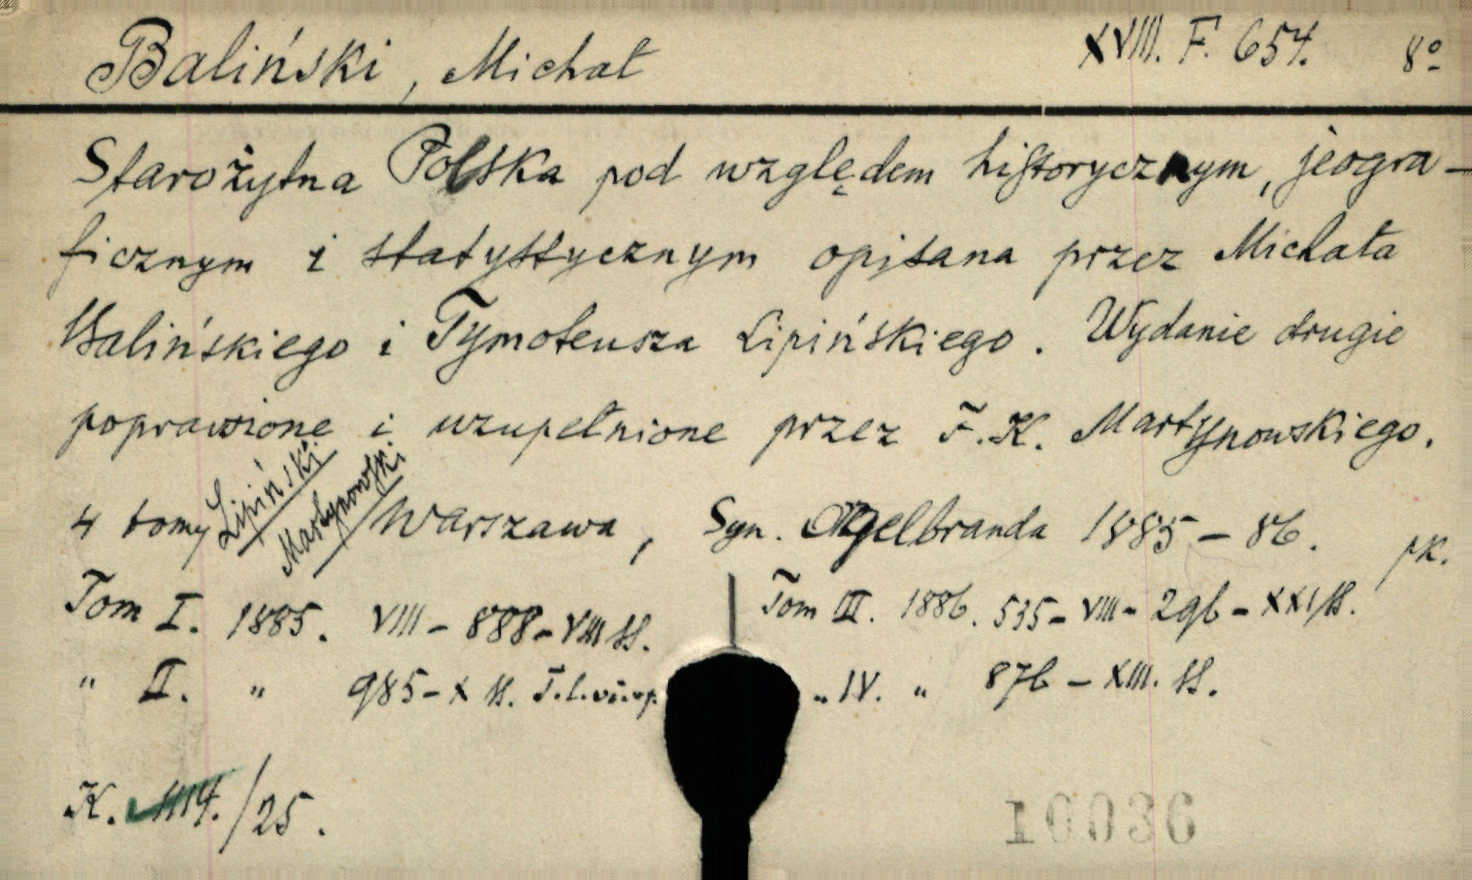 Baliński, Michał XVIII. F. 654. 8º
Starożytna Polska pod względem historycznym, jeogra-
ficznym i statystycznym opisana przez Michała
Balińskiego i Tymoteusza Lipińskiego. Wydanie drugie
poprawione i uzupełnione przez F. K. Martynowskiego.
Lipiński
Martynowski
4 tomy Warszawa, Syn. Orgelbranda 1885-86. pk.
Tom I. 1885. VIII-888-VIII ss. Tom III. 1886. 535-VIII-296-XXI ss.
" II. " 985-X ss. „ IV. „ 876-XIII. ss.
K. 1114./25.
10036